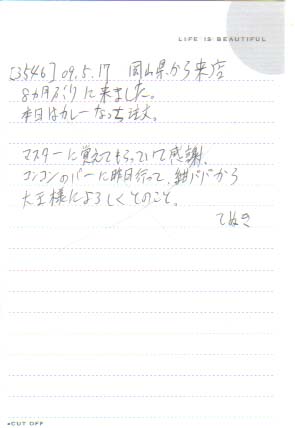 LIFE IS BEAUTIFUL
[3546] 09.5.17 岡山県から来店
8ヵ月ぶりに来ました。
本日はカレーなっち注文。
マスターに覚えてもらっていて感謝。
コンコンのバーに昨日行って、紺パパから
大王様によろしくとのこと。
てぬき
CUT OFF